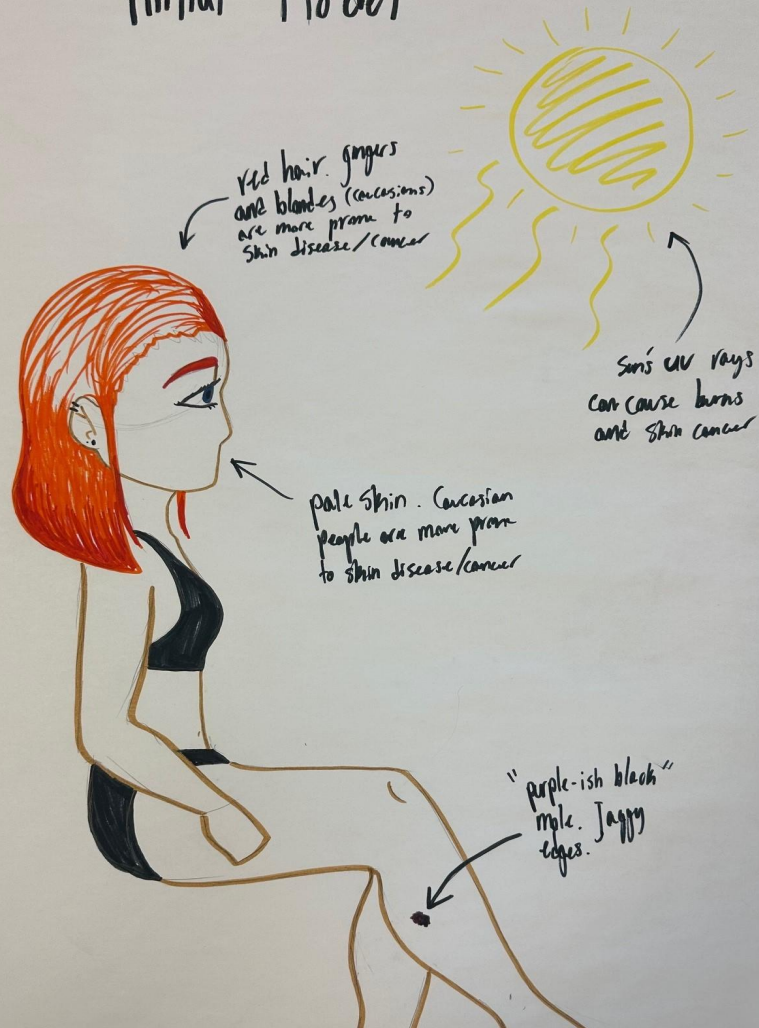 Initial Model
red hair. gingers
and blondes (caucasions)
are more prone to
skin disease/cancer
sun's uv rays
can cause burns
and skin cancer
pale skin. Caucasian
people are more prone
to skin disease/cancer
"purple-ish black"
mole. Jaggy
edges.